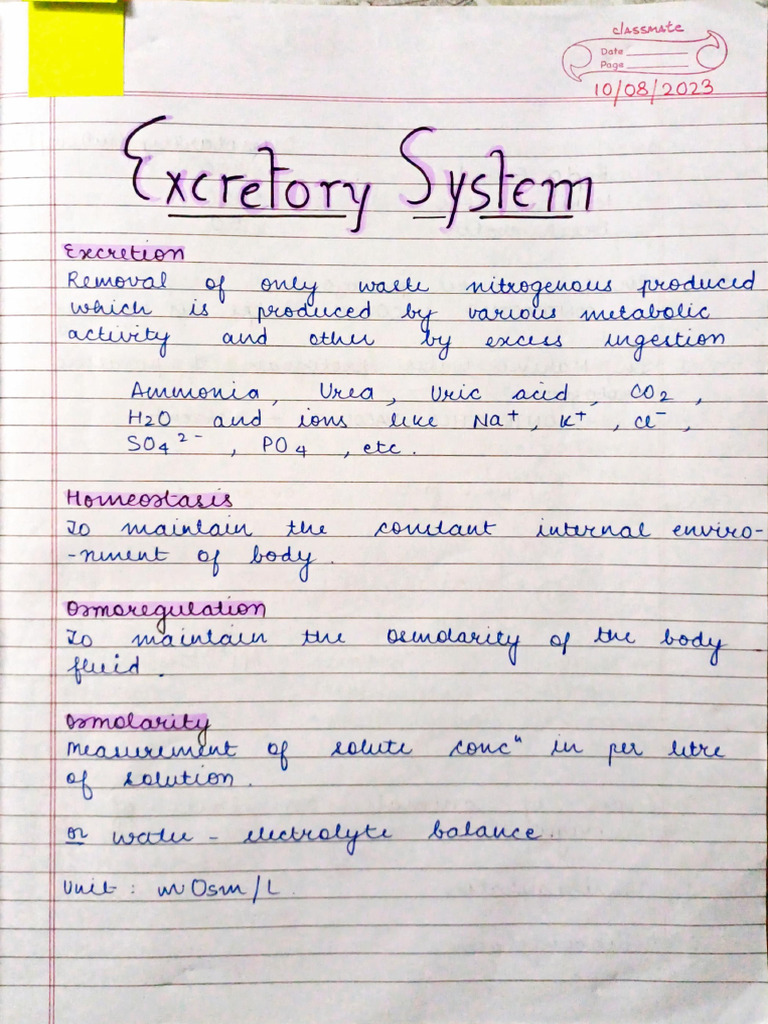 classmate
Date
Page
10/08/2023
Excretory System
Excretion
Removal of only waste nitrogenous produced
which is produced by various metabolic
activity and other by excess ingestion
Ammonia, Urea, Uric acid, CO2,
H2O and ions like Na+, K+, Cl-,
SO4 2-, PO4, etc.
Homeostasis
To maintain the constant internal enviro-
-nment of body.
Osmoregulation
To maintain the osmolarity of the body
fluid.
Osmolarity
Measurement of solute concⁿ in per litre
of solution.
or water - electrolyte balance.
Unit : m Osm/L.